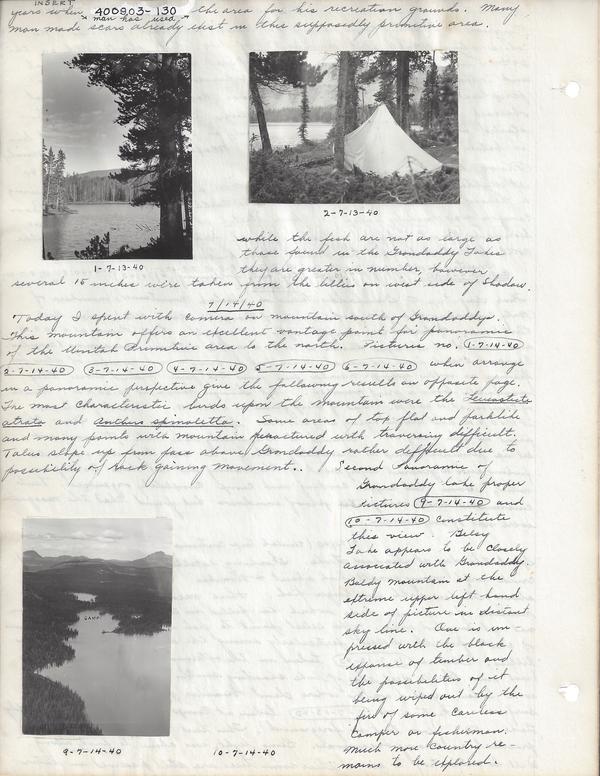 INSERT
400803-130
years when man has used the area for his recreation grounds. Many
man made scars already exist in this supposedly primitive area.
1-7-13-40
2-7-13-40
while the fish are not as large as
those found in the Grandaddy Lakes
they are greater in number, however
several 15 inches were taken from the lillies on west side of Shadow.
7/14/40
Today I spent with camera on mountain south of Grandaddy.
This mountain offers an excellent vantage point for panoramic
of the Uintah Primitive area to the north. Pictures no. 1-7-14-40
2-7-14-40 3-7-14-40 4-7-14-40 5-7-14-40 6-7-14-40 when arrange
in a panoramic perspective give the following results on opposite page.
The most characteristic birds upon the mountain were the Leucosticte
atrata and Anthus spinoletta. Some areas of top flat and parklike
and many points with mountain fractured with traversing difficult.
Talus slope up from pass above Grandaddy rather difficult due to
possibility of rock gaining movement..
Second Panoramic of
Grandaddy Lake proper
Pictures 9-7-14-40 and
10-7-14-40 constitute
this view. Betsy
Lake appears to be closely
associated with Grandaddy.
Baldy Mountain at the
extreme upper left hand
side of picture in distant
sky line. One is im-
pressed with the black
expanse of timber and
the possibilities of it
being wiped out by the
fire of some careless
camper or fisherman.
Much more country re-
mains to be explored.
CAMP
9-7-14-40
10-7-14-40